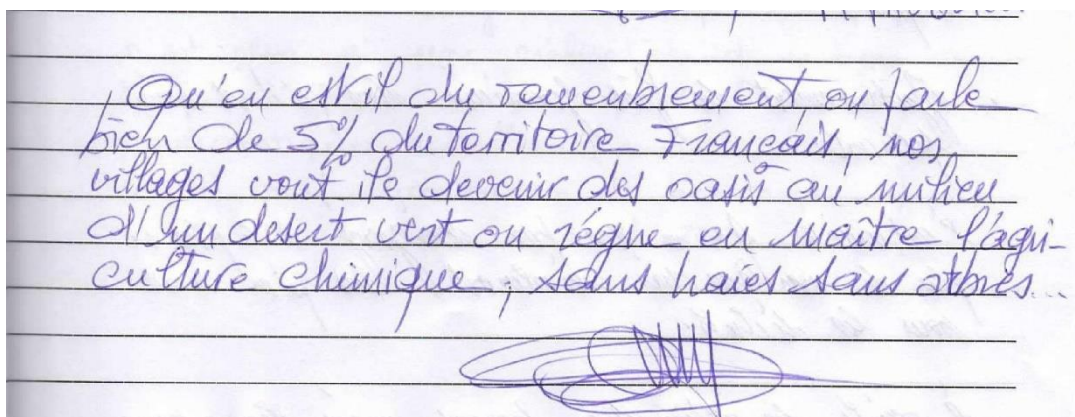 Qu'en est il du remembrement, on parle
bien de 5% du territoire Français, nos
villages vont ils devenir des oasis au milieu
d'un desert vert ou règne en maître l'agri-
culture chimique, sans haies sans arbres...